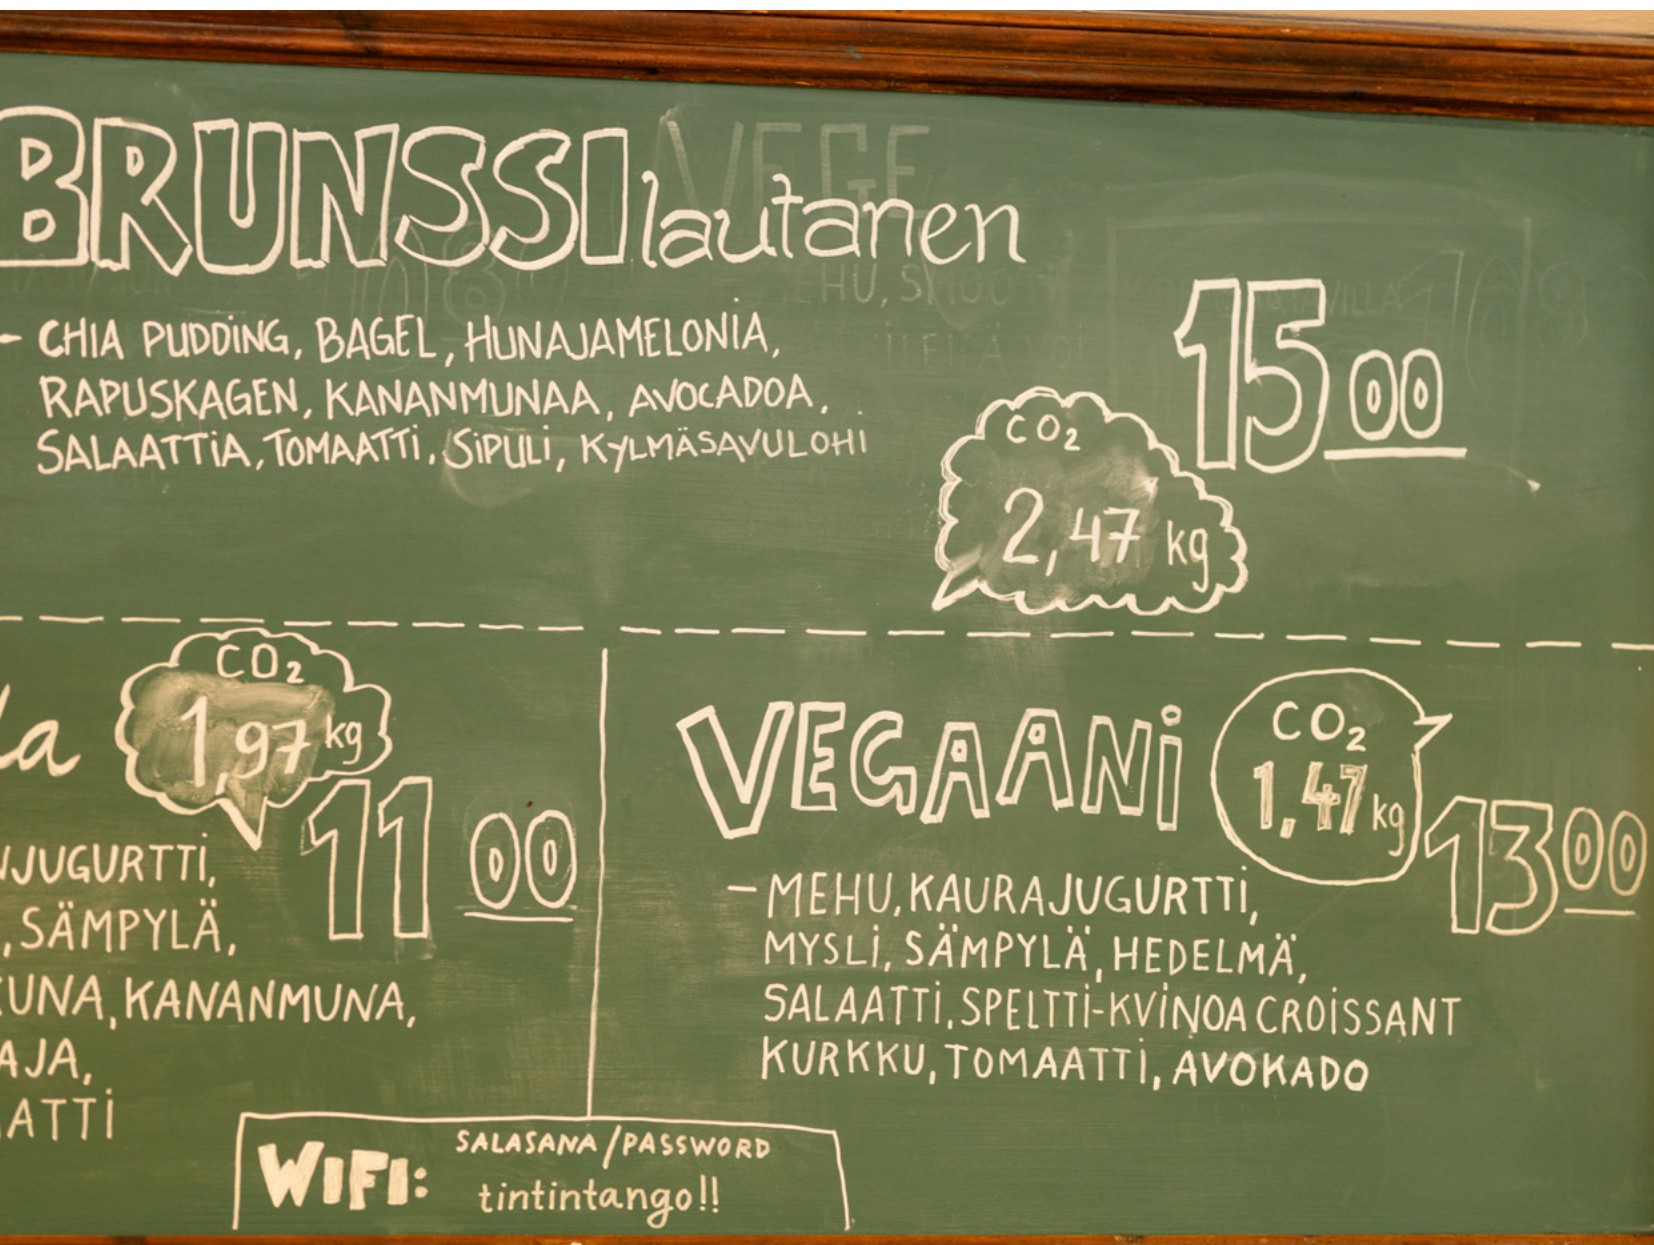 BRUNSSI lautanen
- CHIA PUDDING, BAGEL, HUNAJAMELONIA,
RAPUSKAGEN, KANANMUNAA, AVOCADOA,
SALAATTIA, TOMAATTI, SIPULI, KYLMÄSAVULOHI
15 00
CO2
2,47 kg
la
CO2
1,97 kg
11 00
NJUGURTTI,
, SÄMPYLÄ,
KUNA, KANANMUNA,
AJA,
AATTI
VEGAANI
CO2
1,47 kg
13 00
- MEHU, KAURAJUGURTTI,
MYSLI, SÄMPYLÄ, HEDELMÄ,
SALAATTI, SPELTTI-KVINOA CROISSANT
KURKKU, TOMAATTI, AVOKADO
WIFI:
SALASANA/PASSWORD
tintintango!!